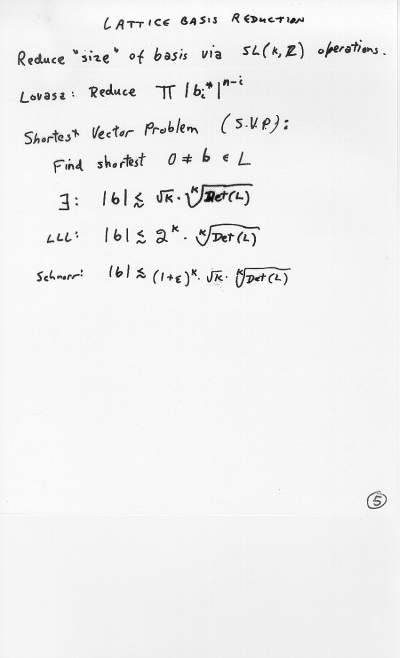 LATTICE BASIS REDUCTION
Reduce "size" of basis via SL(k, ℤ) operations.
Lovasz: Reduce ∏ |b_i*|^{n-i}
Shortest Vector Problem (S.V.P.):
Find shortest 0 ≠ b ∈ L
∃: |b| ≲ √k · ᵏ√Det(L)
LLL: |b| ≲ 2^k · ᵏ√Det(L)
Schnorr: |b| ≲ (1+ε)^k · √k · ᵏ√Det(L)
5